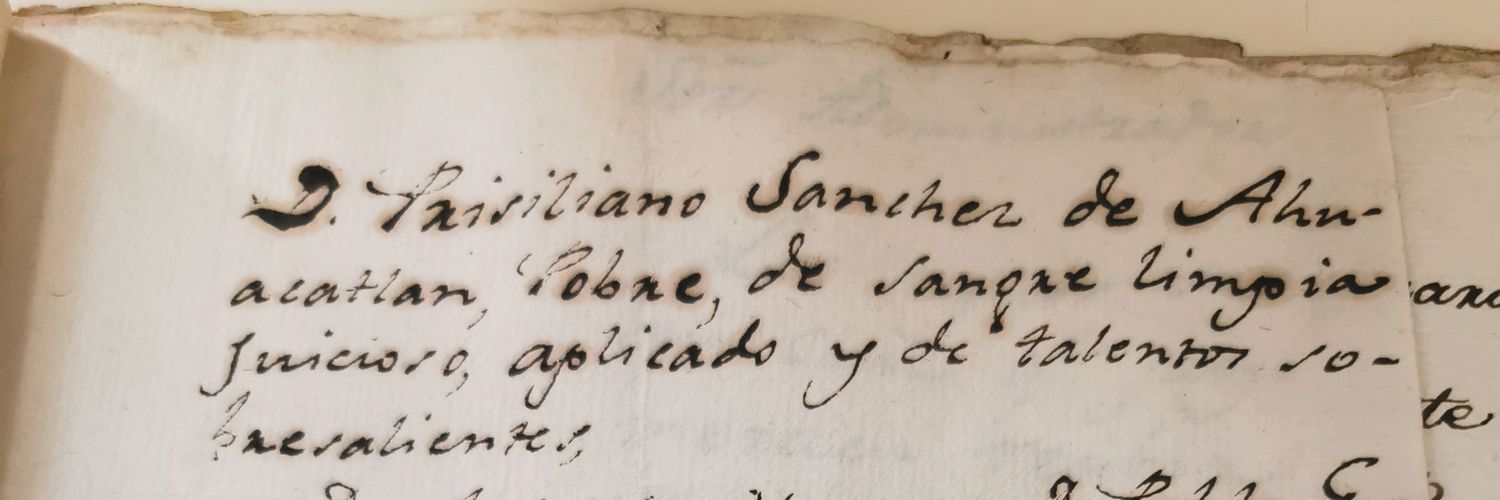 D. Prisiliano Sanchez de Ahu-
acatlan, Pobre, de sangre limpia
Juicioso, aplicado y de talentos so-
bresalientes,
te